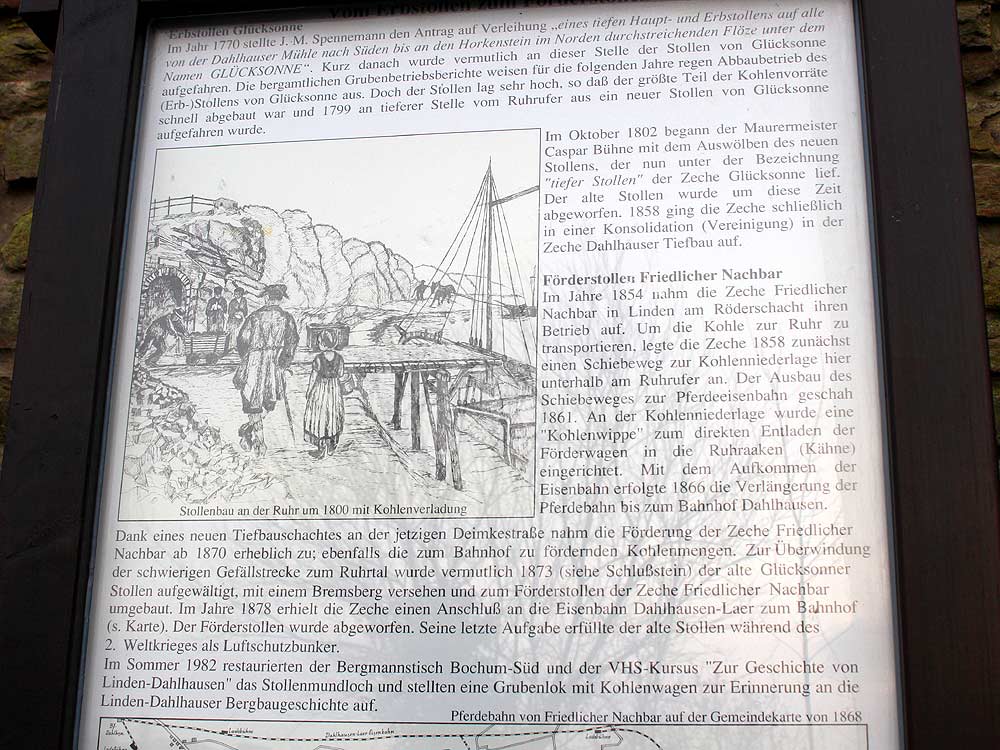 Vom Erbstollen zum Förderstollen
Erbstollen Glücksonne
Im Jahr 1770 stellte J. M. Spennemann den Antrag auf Verleihung „eines tiefen Haupt- und Erbstollens auf alle
von der Dahlhauser Mühle nach Süden bis an den Horkenstein im Norden durchstreichenden Flöze unter dem
Namen GLÜCKSONNE“. Kurz danach wurde vermutlich an dieser Stelle der Stollen von Glücksonne
aufgefahren. Die bergamtlichen Grubenbetriebsberichte weisen für die folgenden Jahre regen Abbaubetrieb des
(Erb-)Stollens von Glücksonne aus. Doch der Stollen lag sehr hoch, so daß der größte Teil der Kohlenvorräte
schnell abgebaut war und 1799 an tieferer Stelle vom Ruhrufer aus ein neuer Stollen von Glücksonne
aufgefahren wurde.
Im Oktober 1802 begann der Maurermeister
Caspar Bühne mit dem Auswölben des neuen
Stollens, der nun unter der Bezeichnung
"tiefer Stollen" der Zeche Glücksonne lief.
Der alte Stollen wurde um diese Zeit
abgeworfen. 1858 ging die Zeche schließlich
in einer Konsolidation (Vereinigung) in der
Zeche Dahlhauser Tiefbau auf.
Förderstollen Friedlicher Nachbar
Im Jahre 1854 nahm die Zeche Friedlicher
Nachbar in Linden am Röderschacht ihren
Betrieb auf. Um die Kohle zur Ruhr zu
transportieren, legte die Zeche 1858 zunächst
einen Schiebeweg zur Kohlenniederlage hier
unterhalb am Ruhrufer an. Der Ausbau des
Schiebeweges zur Pferdeeisenbahn geschah
1861. An der Kohlenniederlage wurde eine
"Kohlenwippe" zum direkten Entladen der
Förderwagen in die Ruhraaken (Kähne)
eingerichtet. Mit dem Aufkommen der
Eisenbahn erfolgte 1866 die Verlängerung der
Pferdebahn bis zum Bahnhof Dahlhausen.
Stollenbau an der Ruhr um 1800 mit Kohlenverladung
Dank eines neuen Tiefbauschachtes an der jetzigen Deimkestraße nahm die Förderung der Zeche Friedlicher
Nachbar ab 1870 erheblich zu; ebenfalls die zum Bahnhof zu fördernden Kohlenmengen. Zur Überwindung
der schwierigen Gefällstrecke zum Ruhrtal wurde vermutlich 1873 (siehe Schlußstein) der alte Glücksonner
Stollen aufgewältigt, mit einem Bremsberg versehen und zum Förderstollen der Zeche Friedlicher Nachbar
umgebaut. Im Jahre 1878 erhielt die Zeche einen Anschluß an die Eisenbahn Dahlhausen-Laer zum Bahnhof
(s. Karte). Der Förderstollen wurde abgeworfen. Seine letzte Aufgabe erfüllte der alte Stollen während des
2. Weltkrieges als Luftschutzbunker.
Im Sommer 1982 restaurierten der Bergmannstisch Bochum-Süd und der VHS-Kursus "Zur Geschichte von
Linden-Dahlhausen" das Stollenmundloch und stellten eine Grubenlok mit Kohlenwagen zur Erinnerung an die
Linden-Dahlhauser Bergbaugeschichte auf.
Pferdebahn von Friedlicher Nachbar auf der Gemeindekarte von 1868
Dahlhausen-Laer Eisenbahn